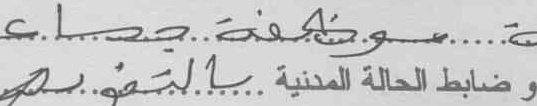 ة موظفة جماعية
و ضابط الحالة المدنية بالتفويض